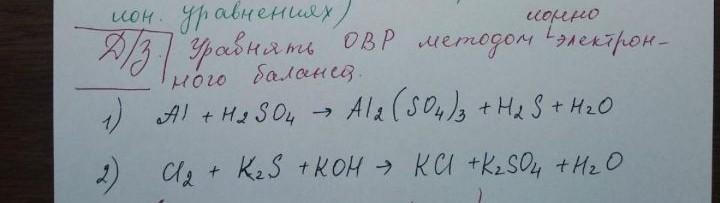 ион. уравнениях)
ионно
Д/З. Уравнять ОВР методом электрон-
ного баланса.
1) Al + H₂SO₄ → Al₂(SO₄)₃ + H₂S + H₂O
2) Cl₂ + K₂S + KOH → KCl + K₂SO₄ + H₂O